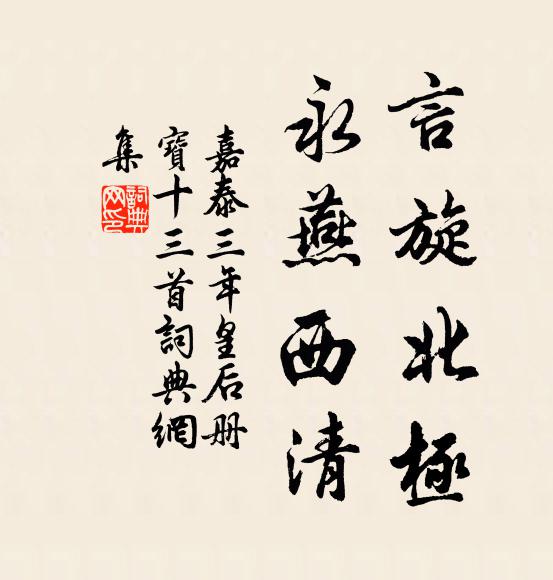 言旋北極
永燕西清
嘉泰三年皇后册
寶十三首詞典網
集
詞典
网印